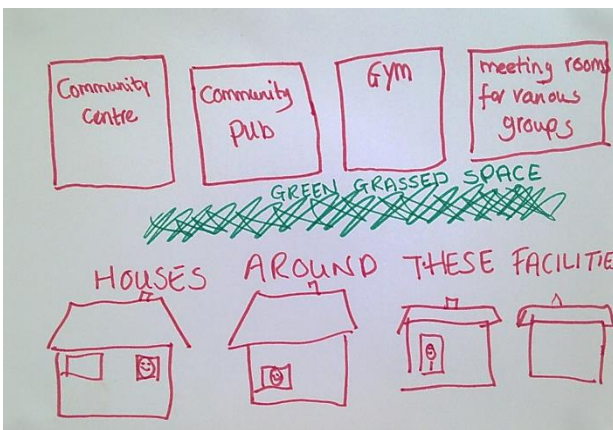 Community
Centre
Community
Pub
Gym
meeting rooms
for various
groups
GREEN GRASSED SPACE
HOUSES AROUND THESE FACILITIE